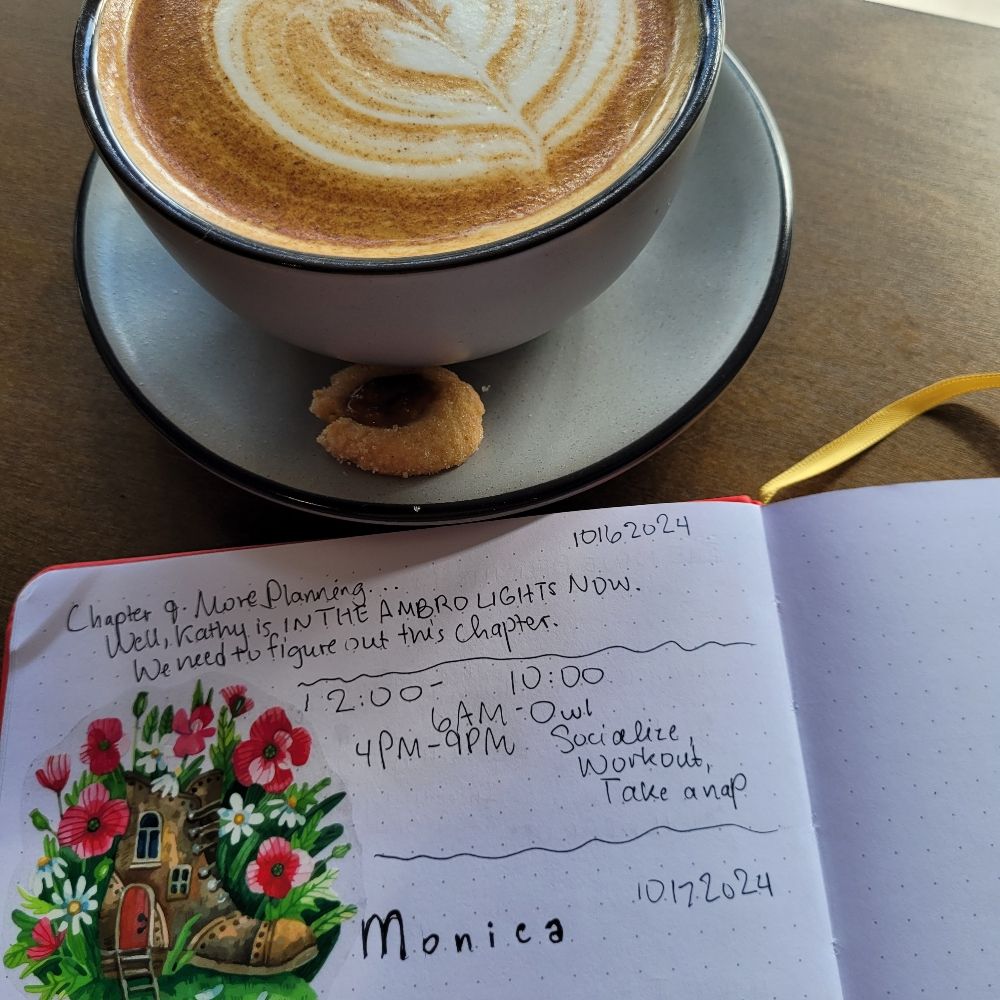 10162024
Chapter 9. More Planning...
Well, Kathy is IN THE AMBRO LIGHTS NOW.
We need to figure out this chapter.
12:00- 10:00
6AM - Owl
4PM-9PM Socialize,
Workout,
Take a nap
10.17.2024
Monica